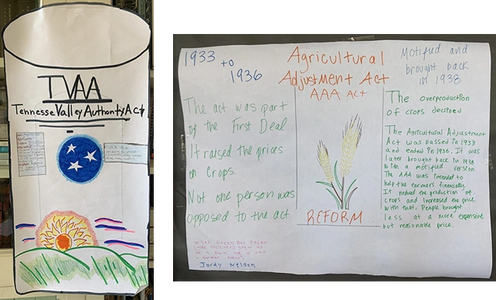 TVAA
Tennesse Valley Authority Act
1933
to
1936
Agricultural
Adjustment Act
AAA ACT
Motified and
brought back
in 1938
The act was part
of the First Deal
It raised the prices
on crops
Not one person was
opposed to the act
REFORM
The overproduction
of crops decreased
The Agricultural Adjustment
Act was passed in 1933
and ended in 1936. It was
later brought back in 1938
with a motified version
The AAA was intended to
help the farmers financially
It reduced the production of
crops and increased the price
with that. People bought
less at a more expensive
but reasonable price.
Nelson